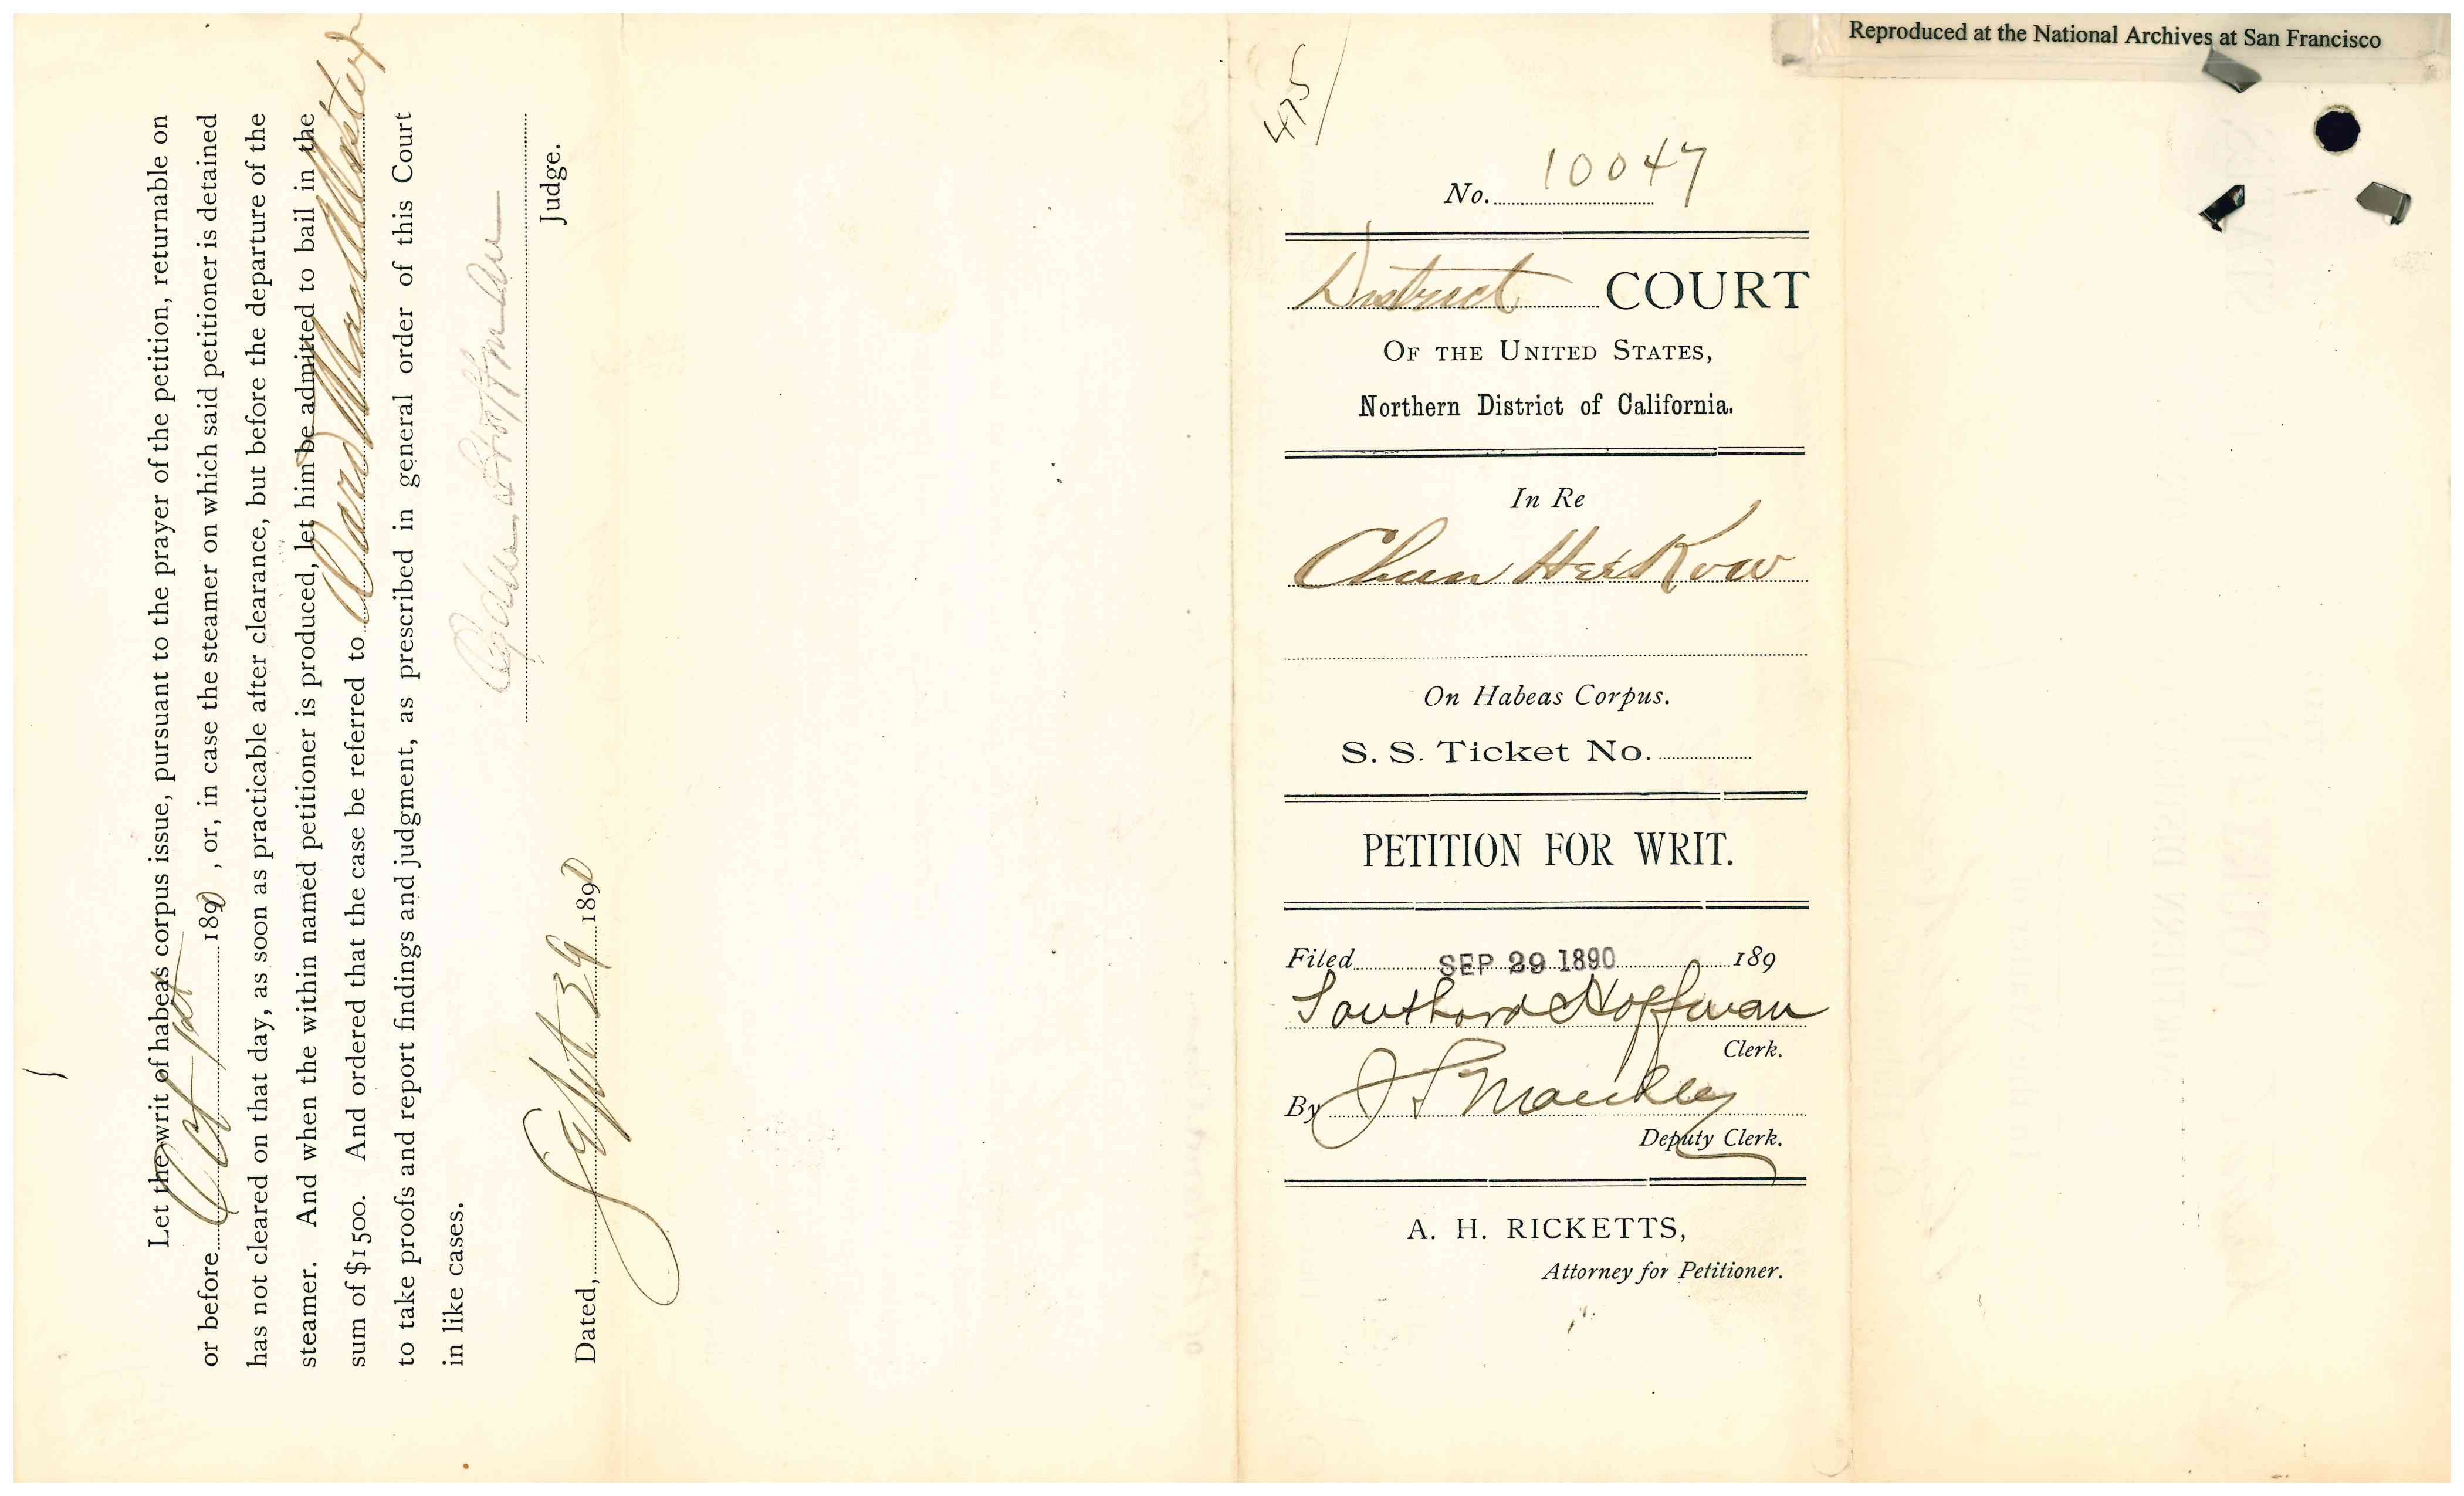 Let the writ of habeas corpus issue, pursuant to the prayer of the petition, returnable on
or before Oct 1st 1890, or, in case the steamer on which said petitioner is detained
has not cleared on that day, as soon as practicable after clearance, but before the departure of the
steamer. And when the within named petitioner is produced, let him be admitted to bail in the
sum of $1500. And ordered that the case be referred to Ward Examiner
to take proofs and report findings and judgment, as prescribed in general order of this Court
in like cases.
Ogden Hoffman
Judge.
Dated, Sept 29 1890
475
No. 10047
District COURT
OF THE UNITED STATES,
Northern District of California.
In Re
Chun Hee Kow
On Habeas Corpus.
S. S. Ticket No.
PETITION FOR WRIT.
Filed SEP 29 1890 189
Southard Hoffman
Clerk.
By J. S. Manley
Deputy Clerk.
A. H. RICKETTS,
Attorney for Petitioner.
Reproduced at the National Archives at San Francisco